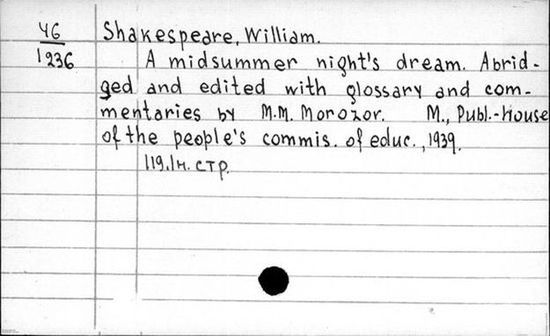 46
1236
Shakespeare, William.
A midsummer night's dream. Abrid-
ged and edited with glossary and com-
mentaries by M.M. Morozor. M., Publ.-House
of the people's commis. of educ., 1939.
119,1н. стр.